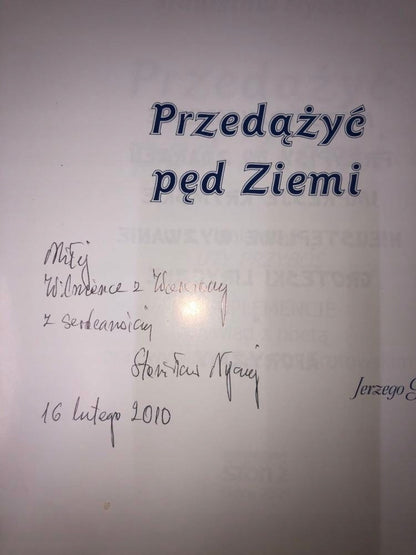 Przedążyć
pęd Ziemi
Miłej
Wilniance z
z serdecznością
Stanisław Nyczaj
16 lutego 2010
Jerzego